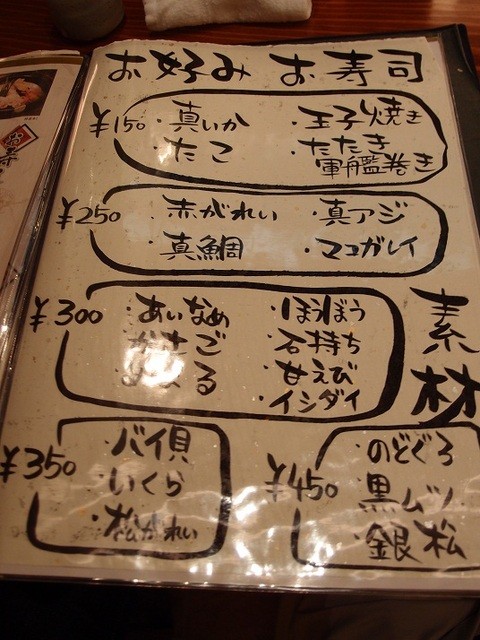 お好み お寿司
¥150
・真いか
・たこ
・玉子焼き
・たたき
軍艦巻き
¥250
・赤がれい
・真鯛
・真アジ
・マコガレイ
¥300
・あいなめ
・かさご
・ほうぼう
・石持ち
・甘えび
・イシダイ
素材
¥350
・バイ貝
・いくら
・松がれい
¥450
・のどぐろ
・黒ムツ
・銀松